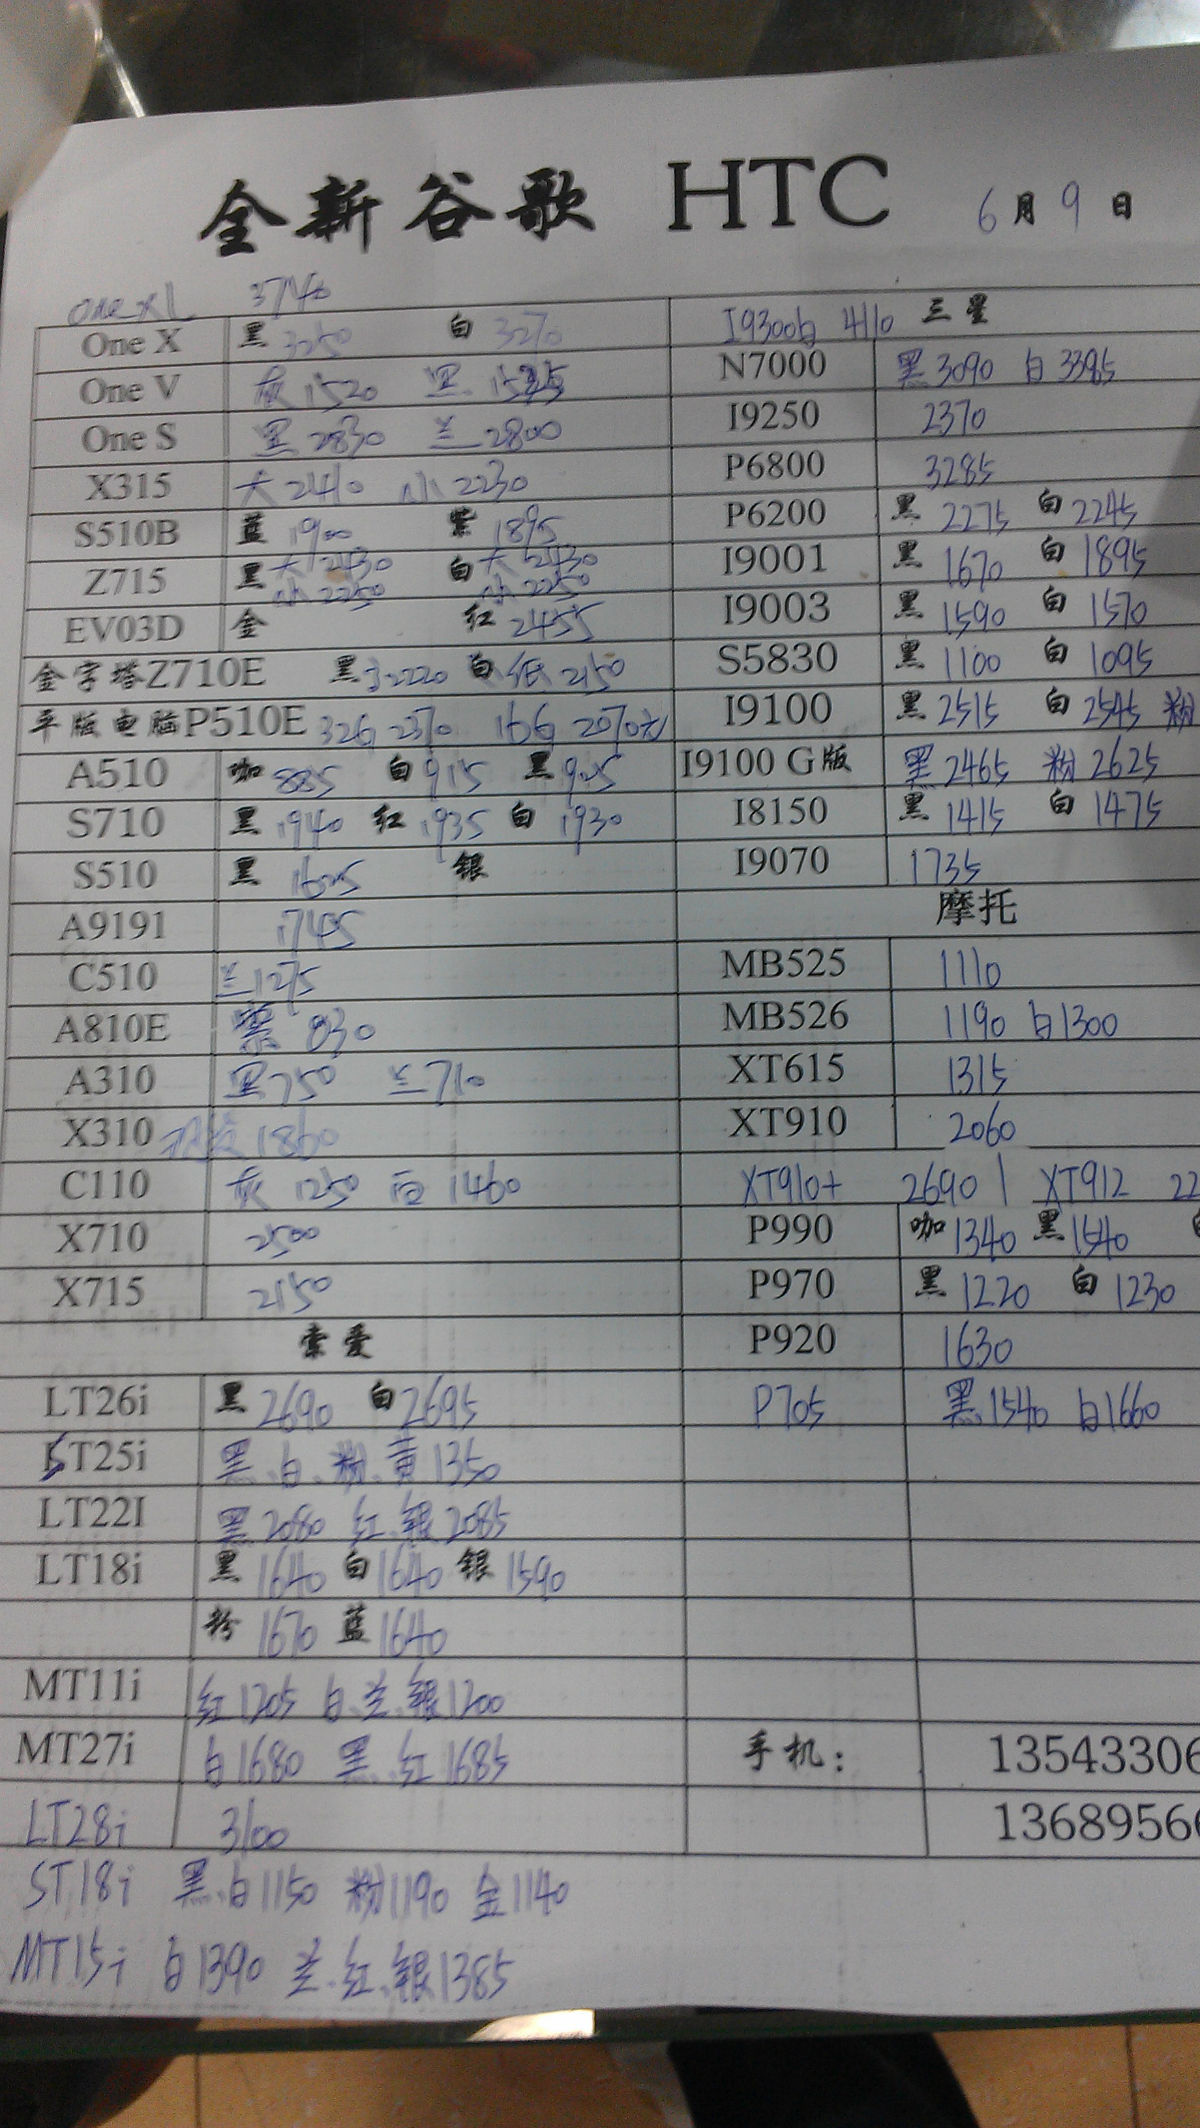 全新谷歌 HTC 6月9日
one xl 3740
One X 黑 3250 白 3270
One V 灰 1520 黑 1525
One S 黑 2830 兰 2800
X315 大 2410 小 2230
S510B 蓝 1900 紫 1895
Z715 黑 大 2430 小 2250 白 大 2430 小 2250
EV03D 金 红 2455
金字塔Z710E 黑 2220 白 低 2150
平版电脑P510E 32G 2370 16G 2070元
A510 咖 885 白 915 黑 925
S710 黑 1940 红 1935 白 1930
S510 黑 1625 银
A9191 1745
C510 兰 1275
A810E 紫 830
A310 黑 750 兰 710
X310 1860
C110 灰 1250 白 1460
X710 2500
X715 2150
索爱
LT26i 黑 2690 白 2695
ST25i 黑、白、粉、黄 1350
LT22I 黑 2080 红、银 2085
LT18i 黑 1640 白 1640 银 1590
粉 1670 蓝 1640
MT11i 红 1205 白、兰、银 1200
MT27i 白 1680 黑、红 1685
LT28i 3100
ST18i 黑、白 1150 粉 1190 金 1140
MT15i 白 1390 兰、红、银 1385
I9300白 4110 三星
N7000 黑 3090 白 3385
I9250 2370
P6800 3285
P6200 黑 2275 白 2245
I9001 黑 1670 白 1895
I9003 黑 1590 白 1570
S5830 黑 1100 白 1095
I9100 黑 2515 白 2545 粉
I9100 G版 黑 2465 粉 2625
I8150 黑 1415 白 1475
I9070 1735
摩托
MB525 1110
MB526 1190 白 1300
XT615 1315
XT910 2060
XT910+ 2690 | XT912 22
P990 咖 1340 黑 1540
P970 黑 1220 白 1230
P920 1630
P705 黑 1540 白 1660
手机： 13543306
1368956